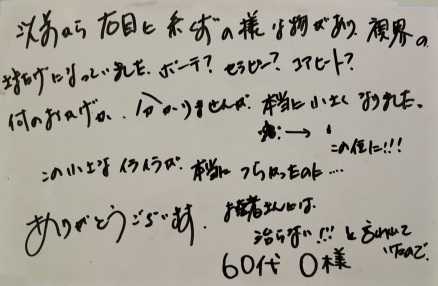 以前から右目に糸くずの様な物があり、視界の
妨げになっていました。ボーテ？セラピー？コアヒート？
何のおかげか、分かりませんが、本当に小さくなりました。
→
この位に!!!
この小さなイライラが、本当に つらかったのに....
ありがとうございます。
お医者さんには、
治らない!!! と言われて
いたので、
60代 O様